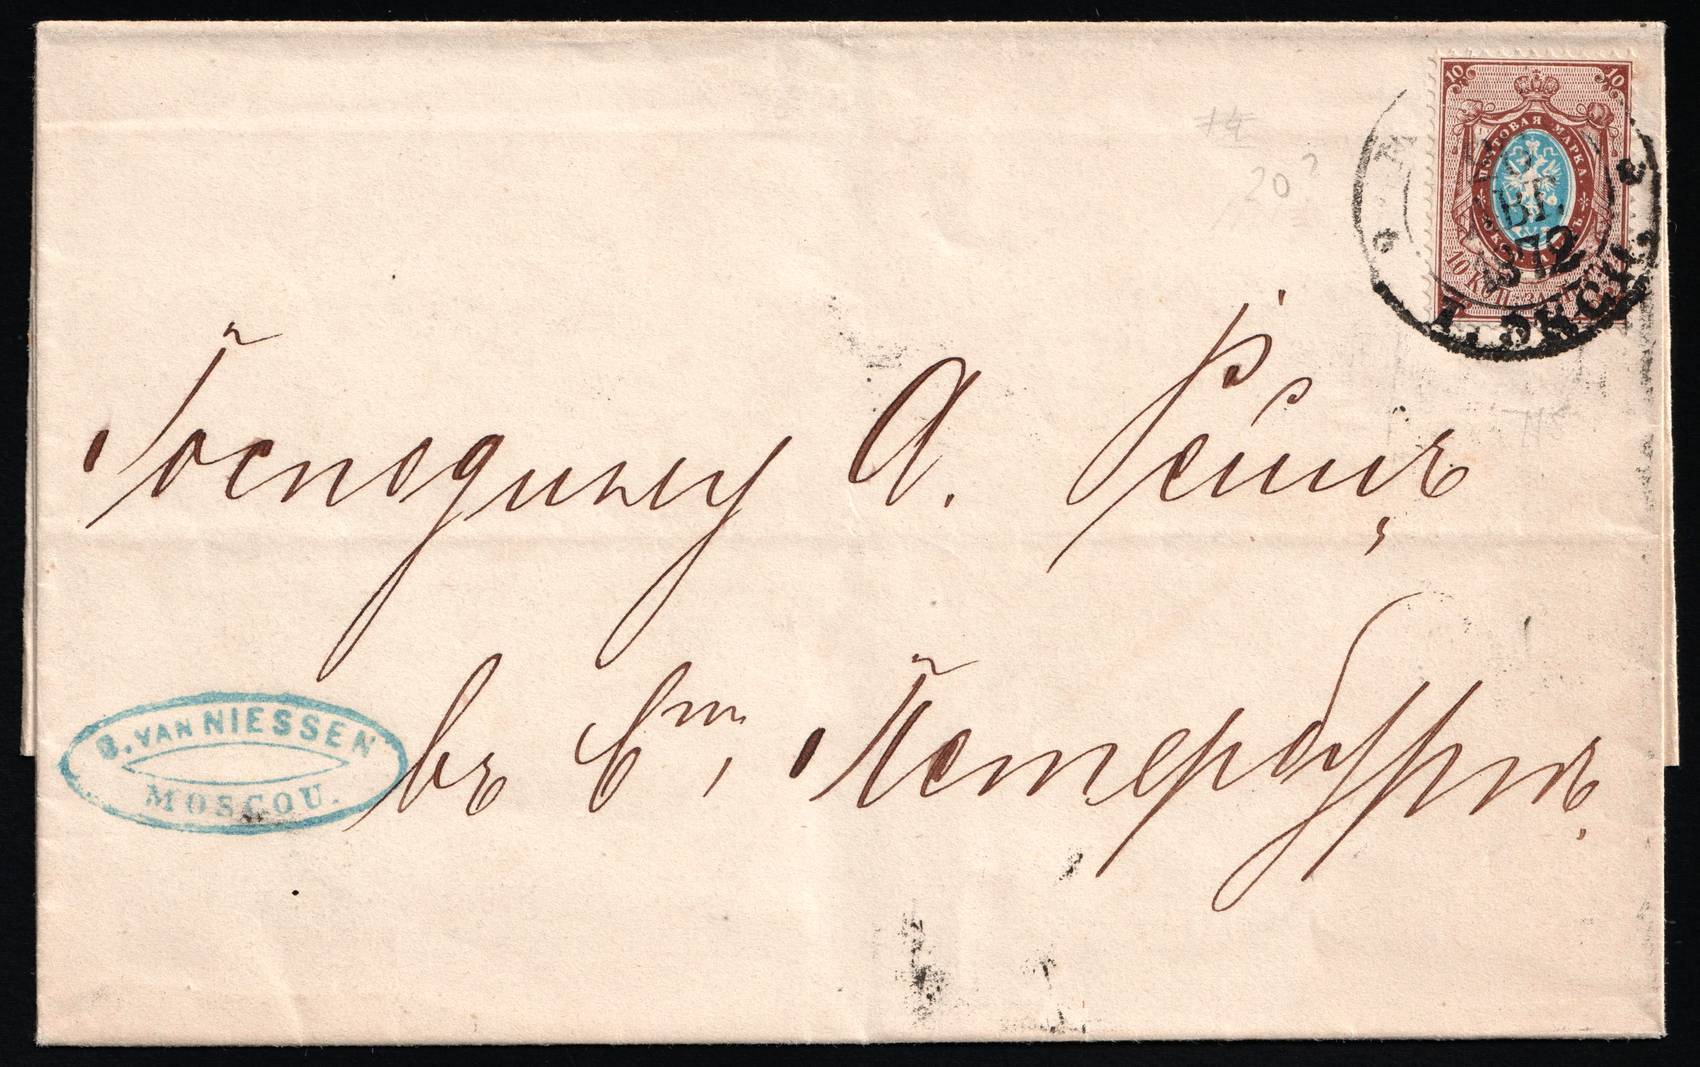 10 10
ПОЧТОВАЯ МАРКА.
10 КОП.
АВГ.
1872
1. ЭКСП.
20?
Господину А. Ренцъ
въ Ст, Петербургъ.
B. VAN NIESSEN
MOSCOU.